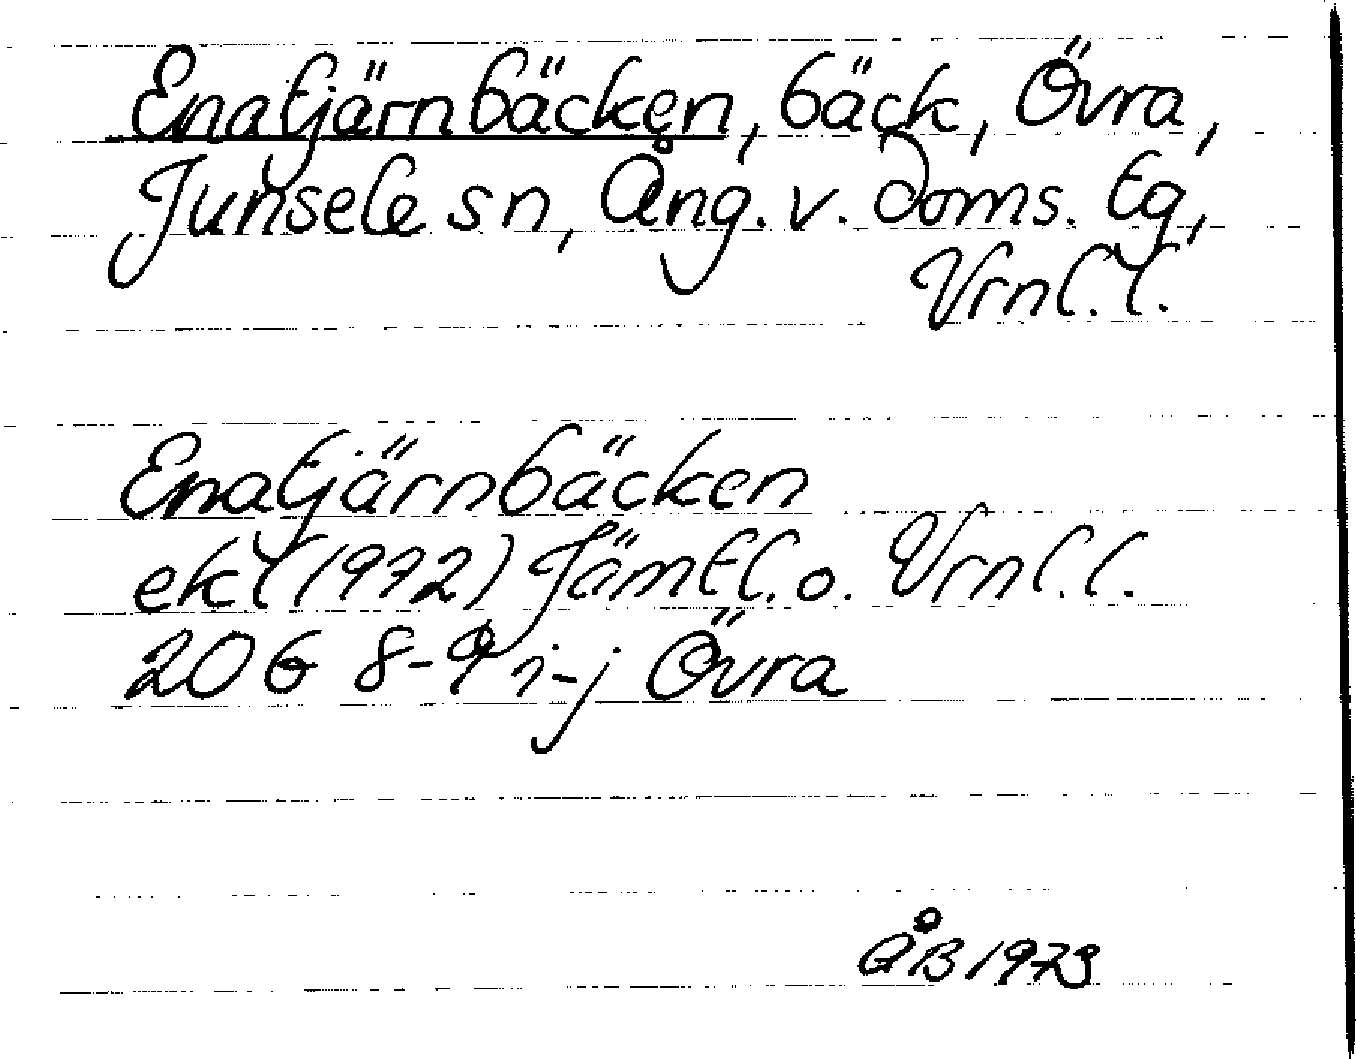 Enatjärnbäcken, bäck, Övra,
Junsele sn, Ång. v. doms. tg,
Vrnl. l.
Enatjärnbäcken
ekl (1972) Jämtl. o. Vrnl. l.
20 G 8-9 i-j Övra
ÅB 1973